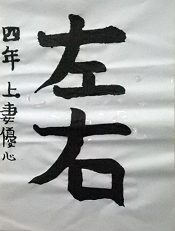 左右
四年 上妻優心